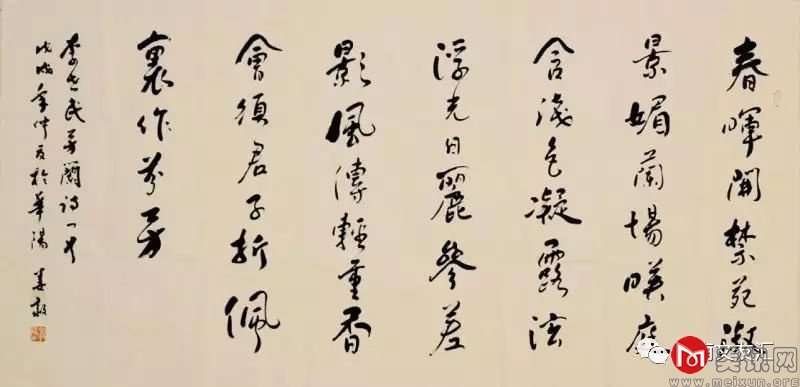 春暉開禁苑淑
景媚蘭場暎庭
含淺色凝露泫
浮光日麗參差
影風傳輕重香
會須君子折佩
裏作芬芳
李世民芳蘭詩一首
戊戌年仲夏於華陽 姜
文友汇
美讯网
www.meixun.org